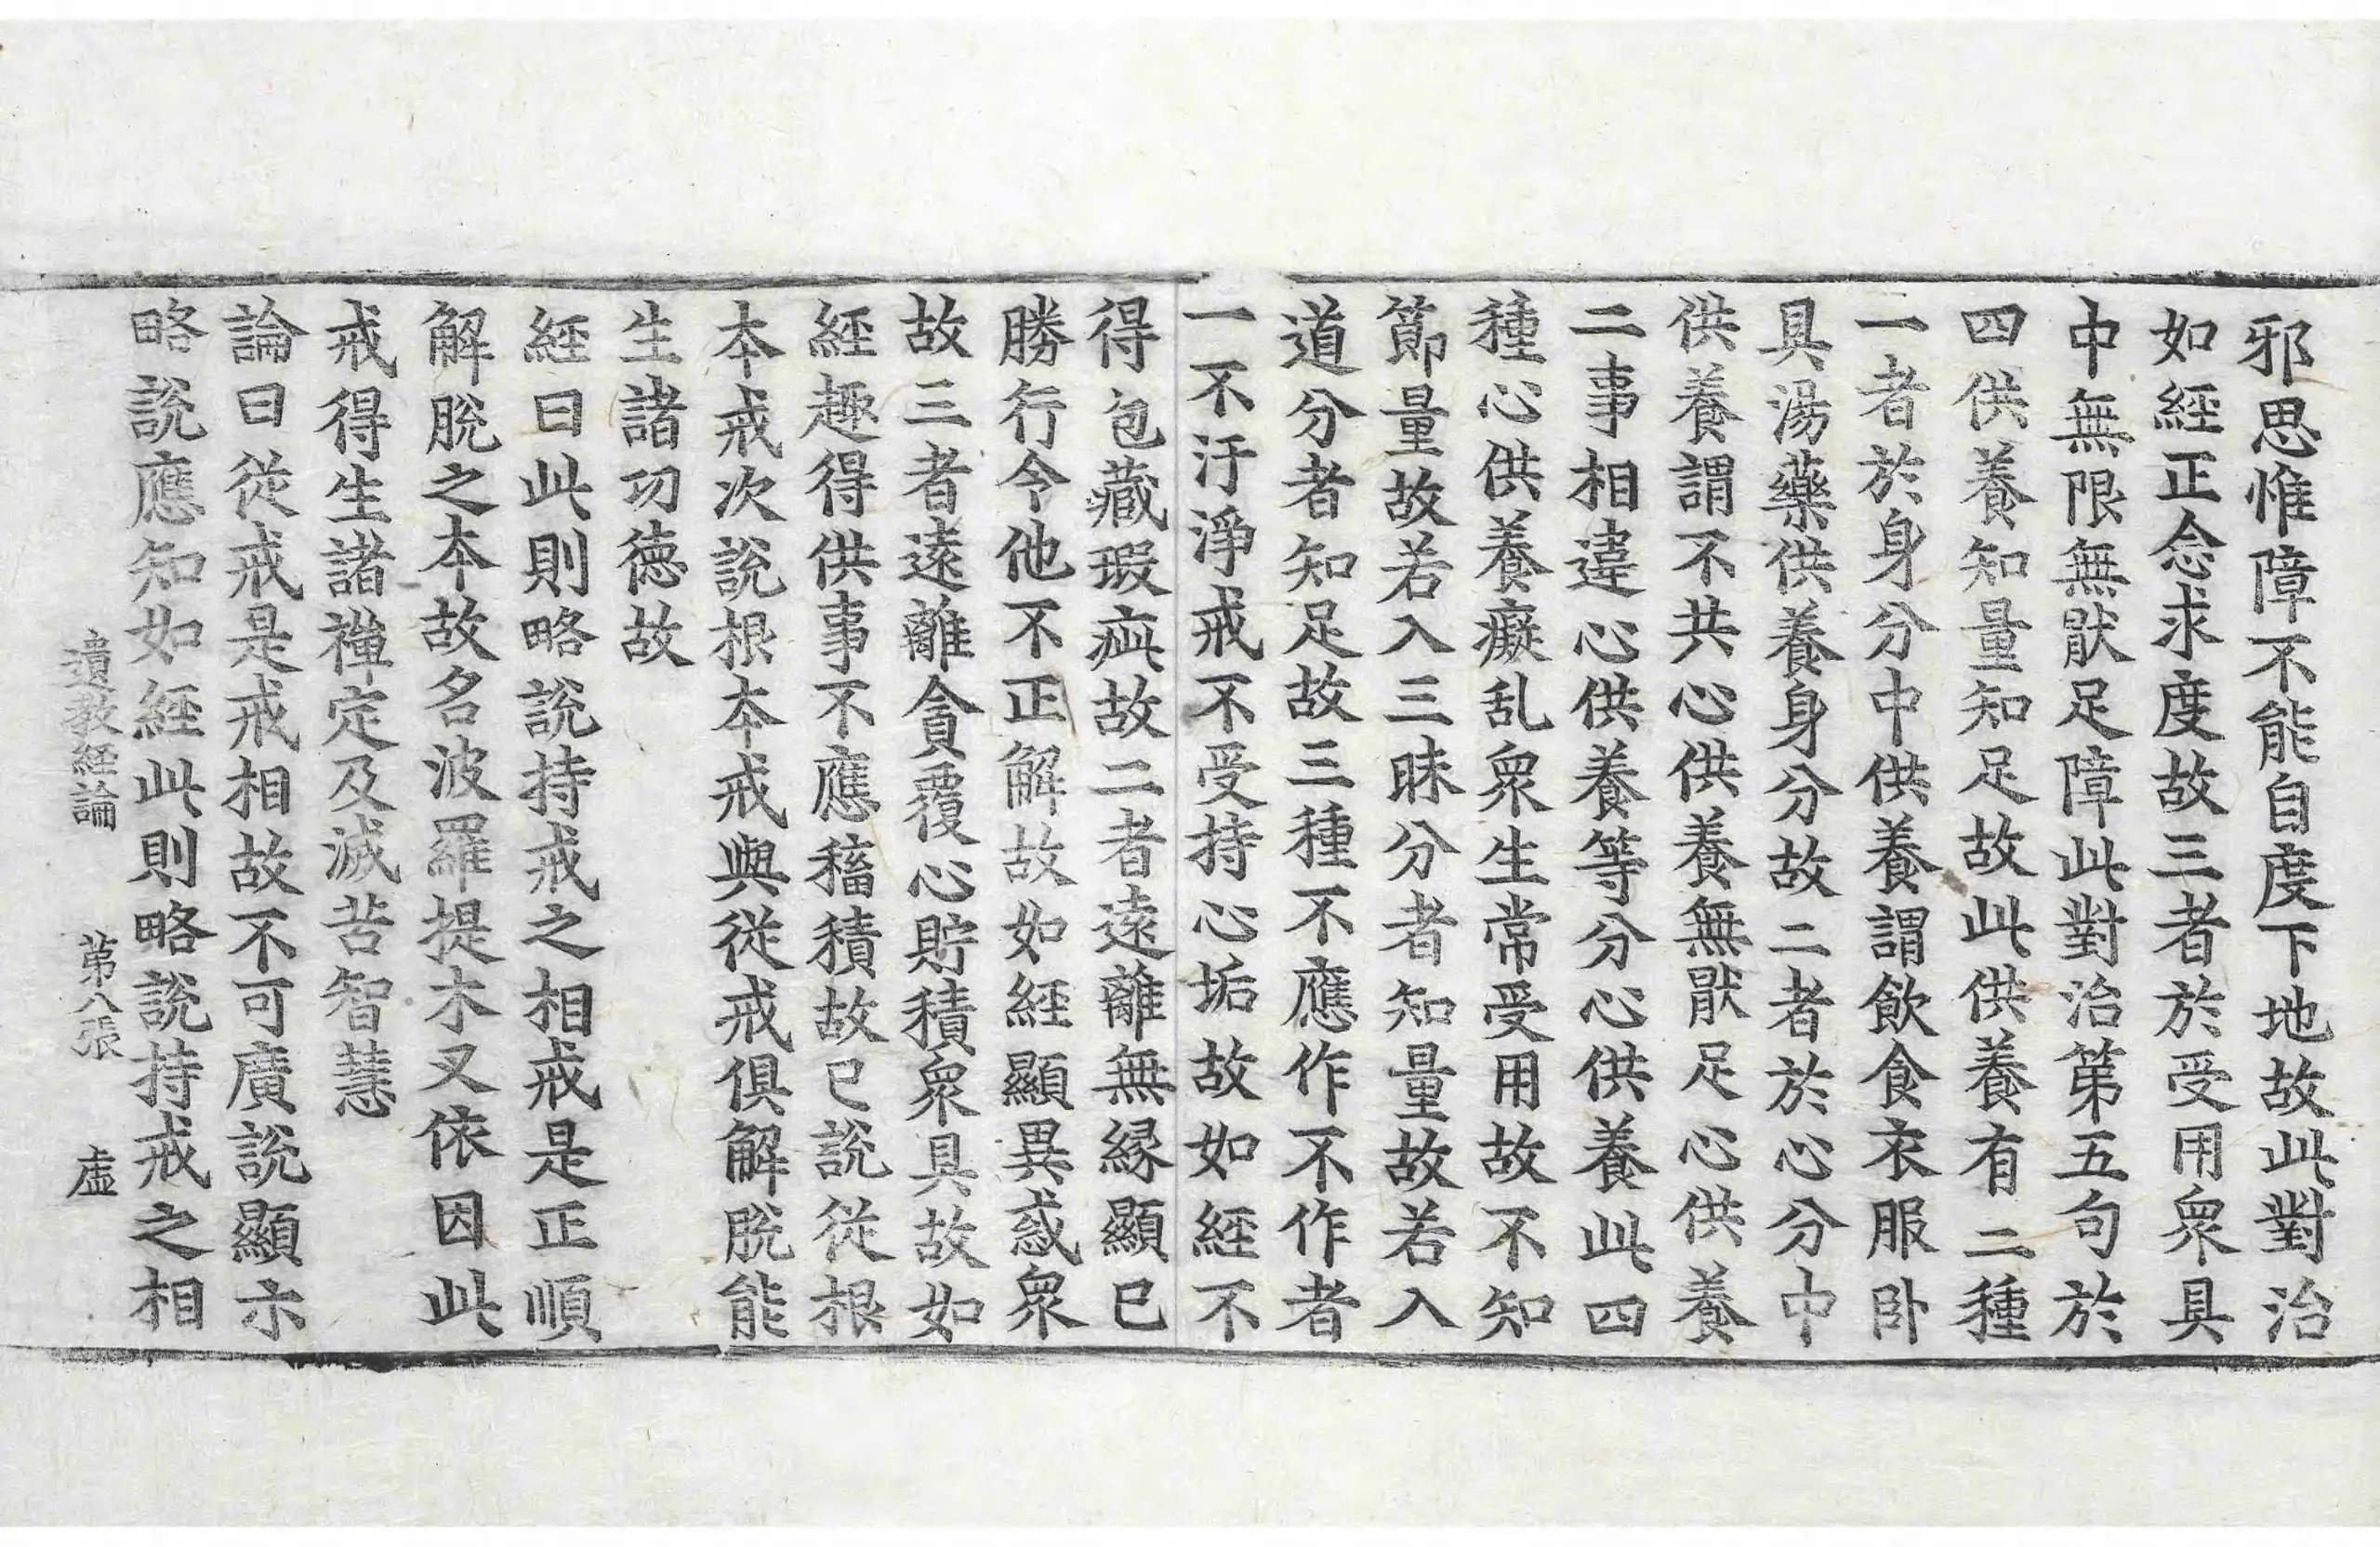 邪思惟障不能自度下地故此對治
如經正念求度故三者於受用衆具
中無限無猒足障此對治第五句於
四供養知量知足故此供養有二種
一者於身分中供養謂飲食衣服卧
具湯藥供養身分故二者於心分中
供養謂不共心供養無猒足心供養
二事相違心供養等分心供養此四
種心供養癡乱衆生常受用故不知
節量故若入三昧分者知量故若入
道分者知足故三種不應作不作者
一不汙淨戒不受持心垢故如經不
得包藏瑕疵故二者遠離無緣顯已
勝行令他不正解故如經顯異惑衆
故三者遠離貪覆心貯積衆具故如
經趣得供事不應稸積故已說從根
本戒次說根本戒與從戒俱解脫能
生諸功德故
經曰此則略說持戒之相戒是正順
解脫之本故名波羅提木叉依因此
戒得生諸禪定及滅苦智慧
論曰從戒是戒相故不可廣說顯示
略說應知如經此則略說持戒之相
遺教經論 第八張 虛